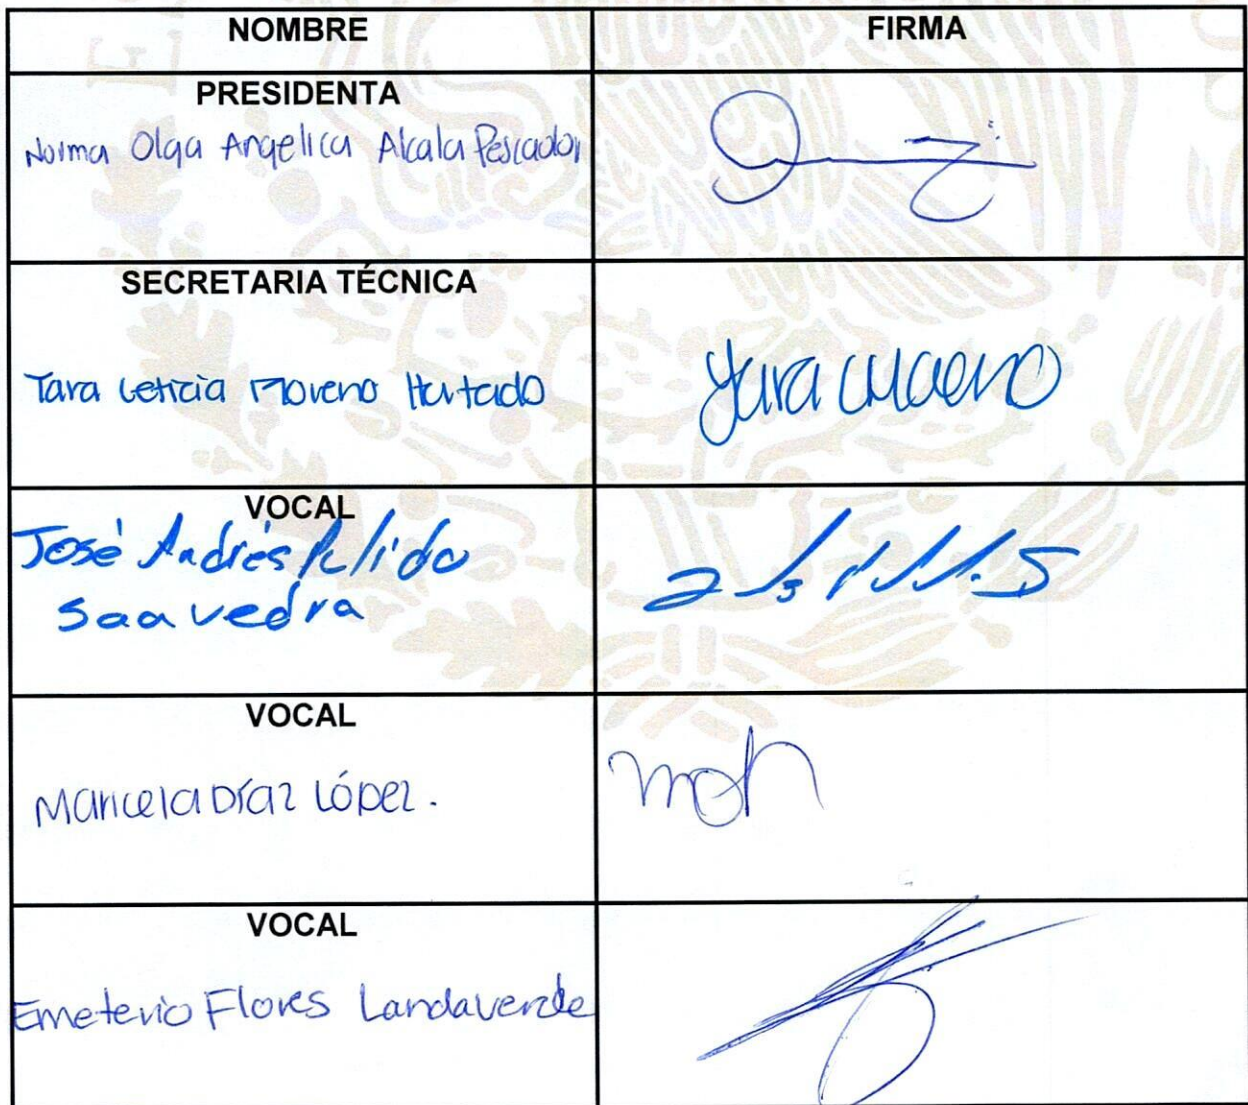 NOMBRE FIRMA
PRESIDENTA
Norma Olga Angelica Alcala Pescador
SECRETARIA TÉCNICA
Leticia Moreno Hurtado
VOCAL
José Andrés
Saavedra
VOCAL
Maricela Díaz López.
VOCAL
Emeterio Flores Landaverde